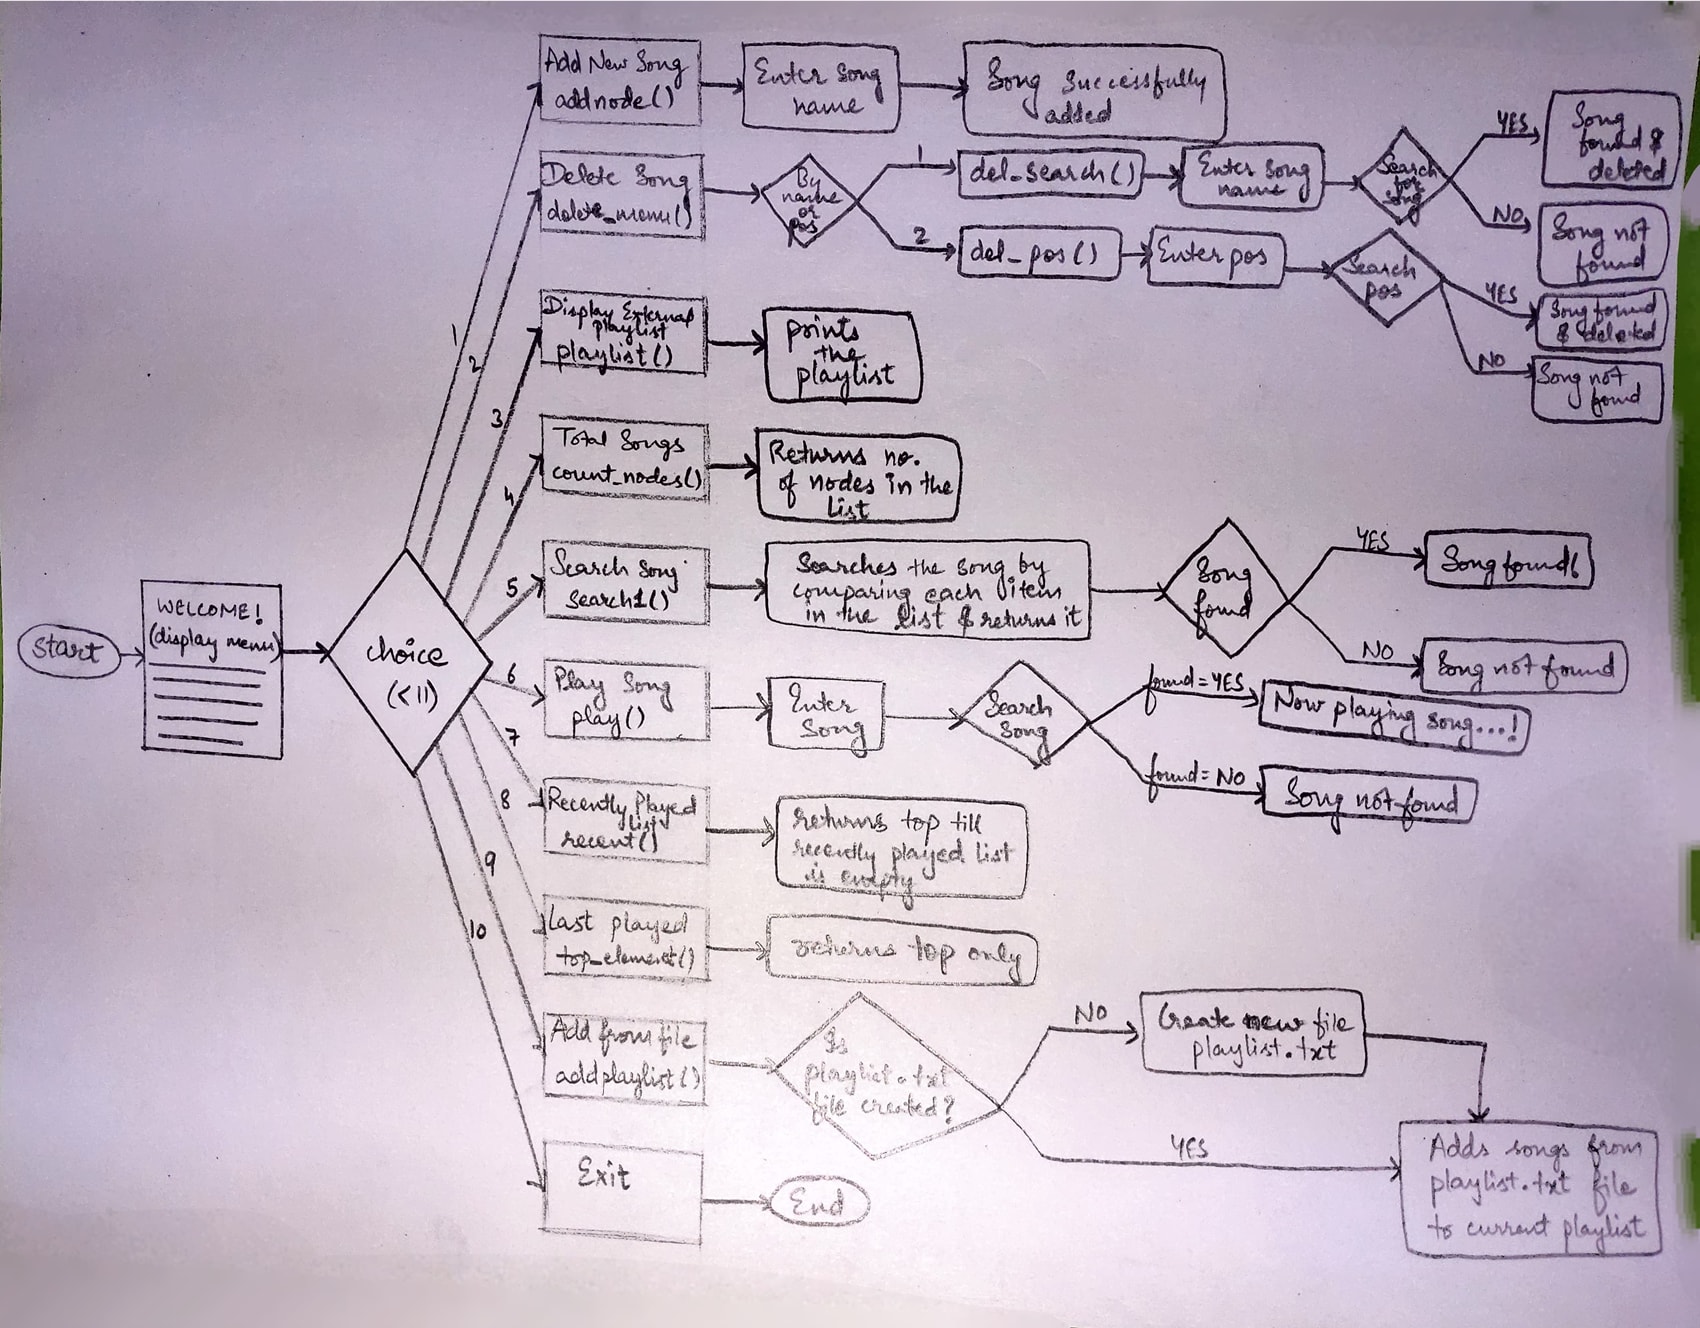 Start
WELCOME!
(display menu)
choice
(<11)
1
2
3
4
5
6
7
8
9
10
Add New Song
addnode()
Enter song
name
Song successfully
added
Delete Song
delete_menu()
By
name
or
pos
1
del_search()
Enter song
name
Search
for
song
YES
Song
found &
deleted
NO
Song not
found
2
del_pos()
Enter pos
Search
pos
YES
Song found
& deleted
NO
Song not
found
Display External
playlist
playlist()
prints
the
playlist
Total Songs
count_nodes()
Returns no.
of nodes in the
list
Search Song
search1()
Searches the song by
comparing each item
in the list & returns it
Song
found
YES
Song found
NO
Song not found
Play Song
play()
Enter
Song
Search
Song
found = YES
Now playing song...!
found = NO
Song not found
Recently Played
list
recent()
returns top till
recently played list
is empty
Last played
top_element()
returns top only
Add from file
addplaylist()
Is
playlist.txt
file created?
NO
Create new file
playlist.txt
YES
Adds songs from
playlist.txt file
to current playlist
Exit
End